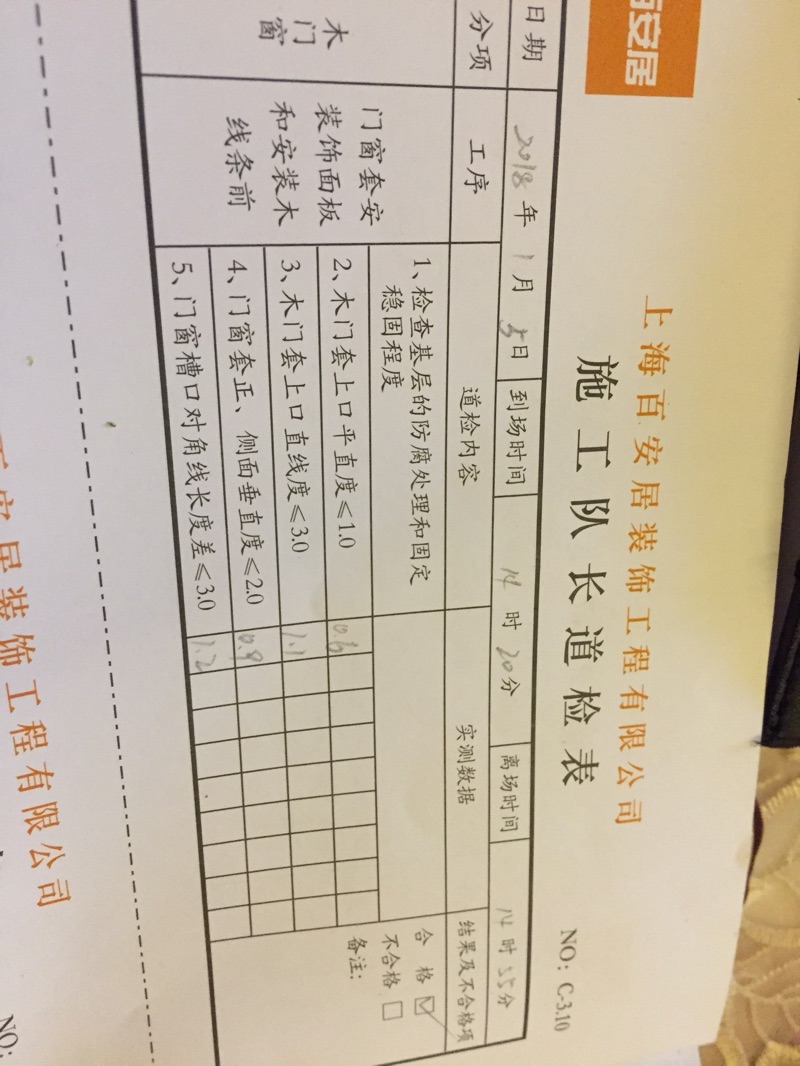 安居
上海百安居装饰工程有限公司
施工队长道检表
NO: C-3.10
日期 2018年1月5日 到场时间 14时20分 离场时间 14时55分
分项 工序 道检内容 实测数据 结果及不合格项
木门窗
门窗套安
装饰面板
和安装木
线条前
1、检查基层的防腐处理和固定
稳固程度
2、木门套上口平直度≤1.0 0.6
3、木门套上口直线度≤3.0 1.1
4、门窗套正、侧面垂直度≤2.0 0.9
5、门窗槽口对角线长度差≤3.0 1.2
合格 ☑
不合格 □
备注:
安居装饰工程有限公司
NO: